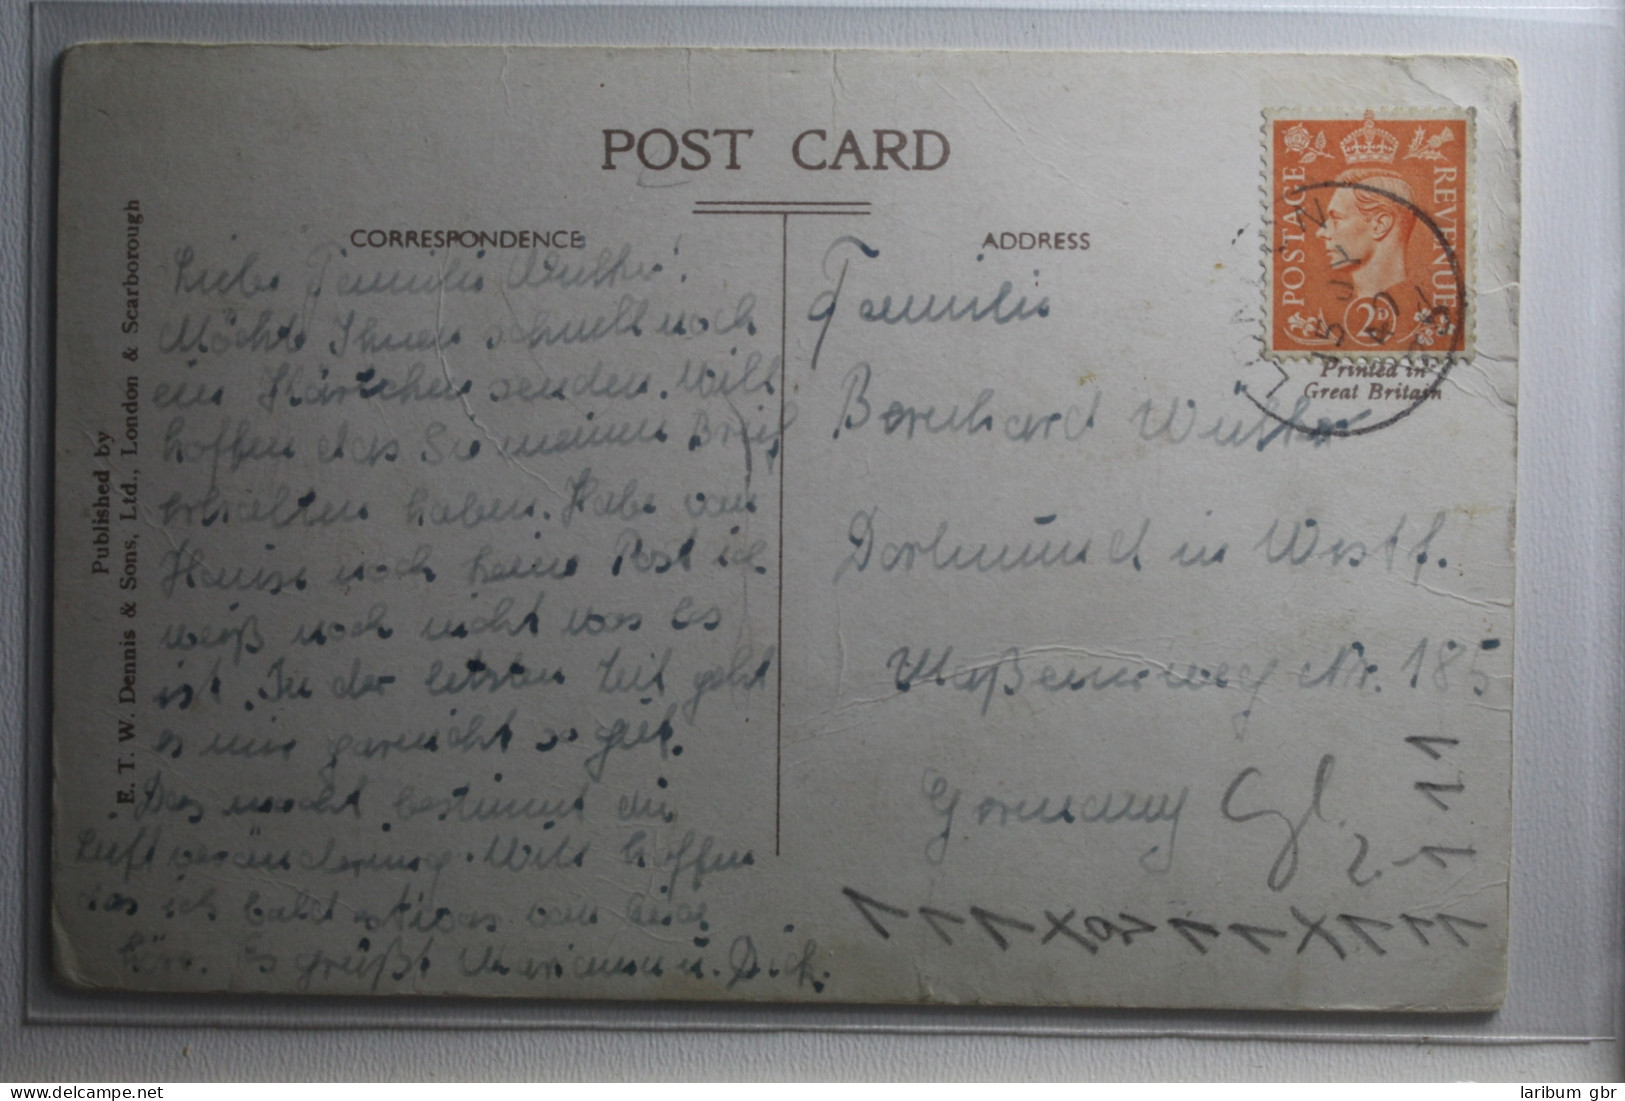 POST CARD
CORRESPONDENCE
ADDRESS
Published by
E. T. W. Dennis & Sons, Ltd., London & Scarborough
Liebe Familie Wulke!
Möchte Ihnen schnell noch
ein Kärtchen senden. Will
hoffen das Sie meinen Brief
erhalten haben. Habe von
Hause noch keine Post ich
weiß noch nicht was es
ist. In der letzten Zeit geht
es mir garnicht so gut.
Das macht bestimmt die
Luftveränderung. Will hoffen
das ich bald etwas von
höre. Es grüßt Marianne u. Dick.
Familie
Bernhard
Dortmund in Westf.
Nr. 185
Germany
POSTAGE REVENUE
2D
LONDON
15 JUN
49
Printed in
Great Britain
laribum gbr